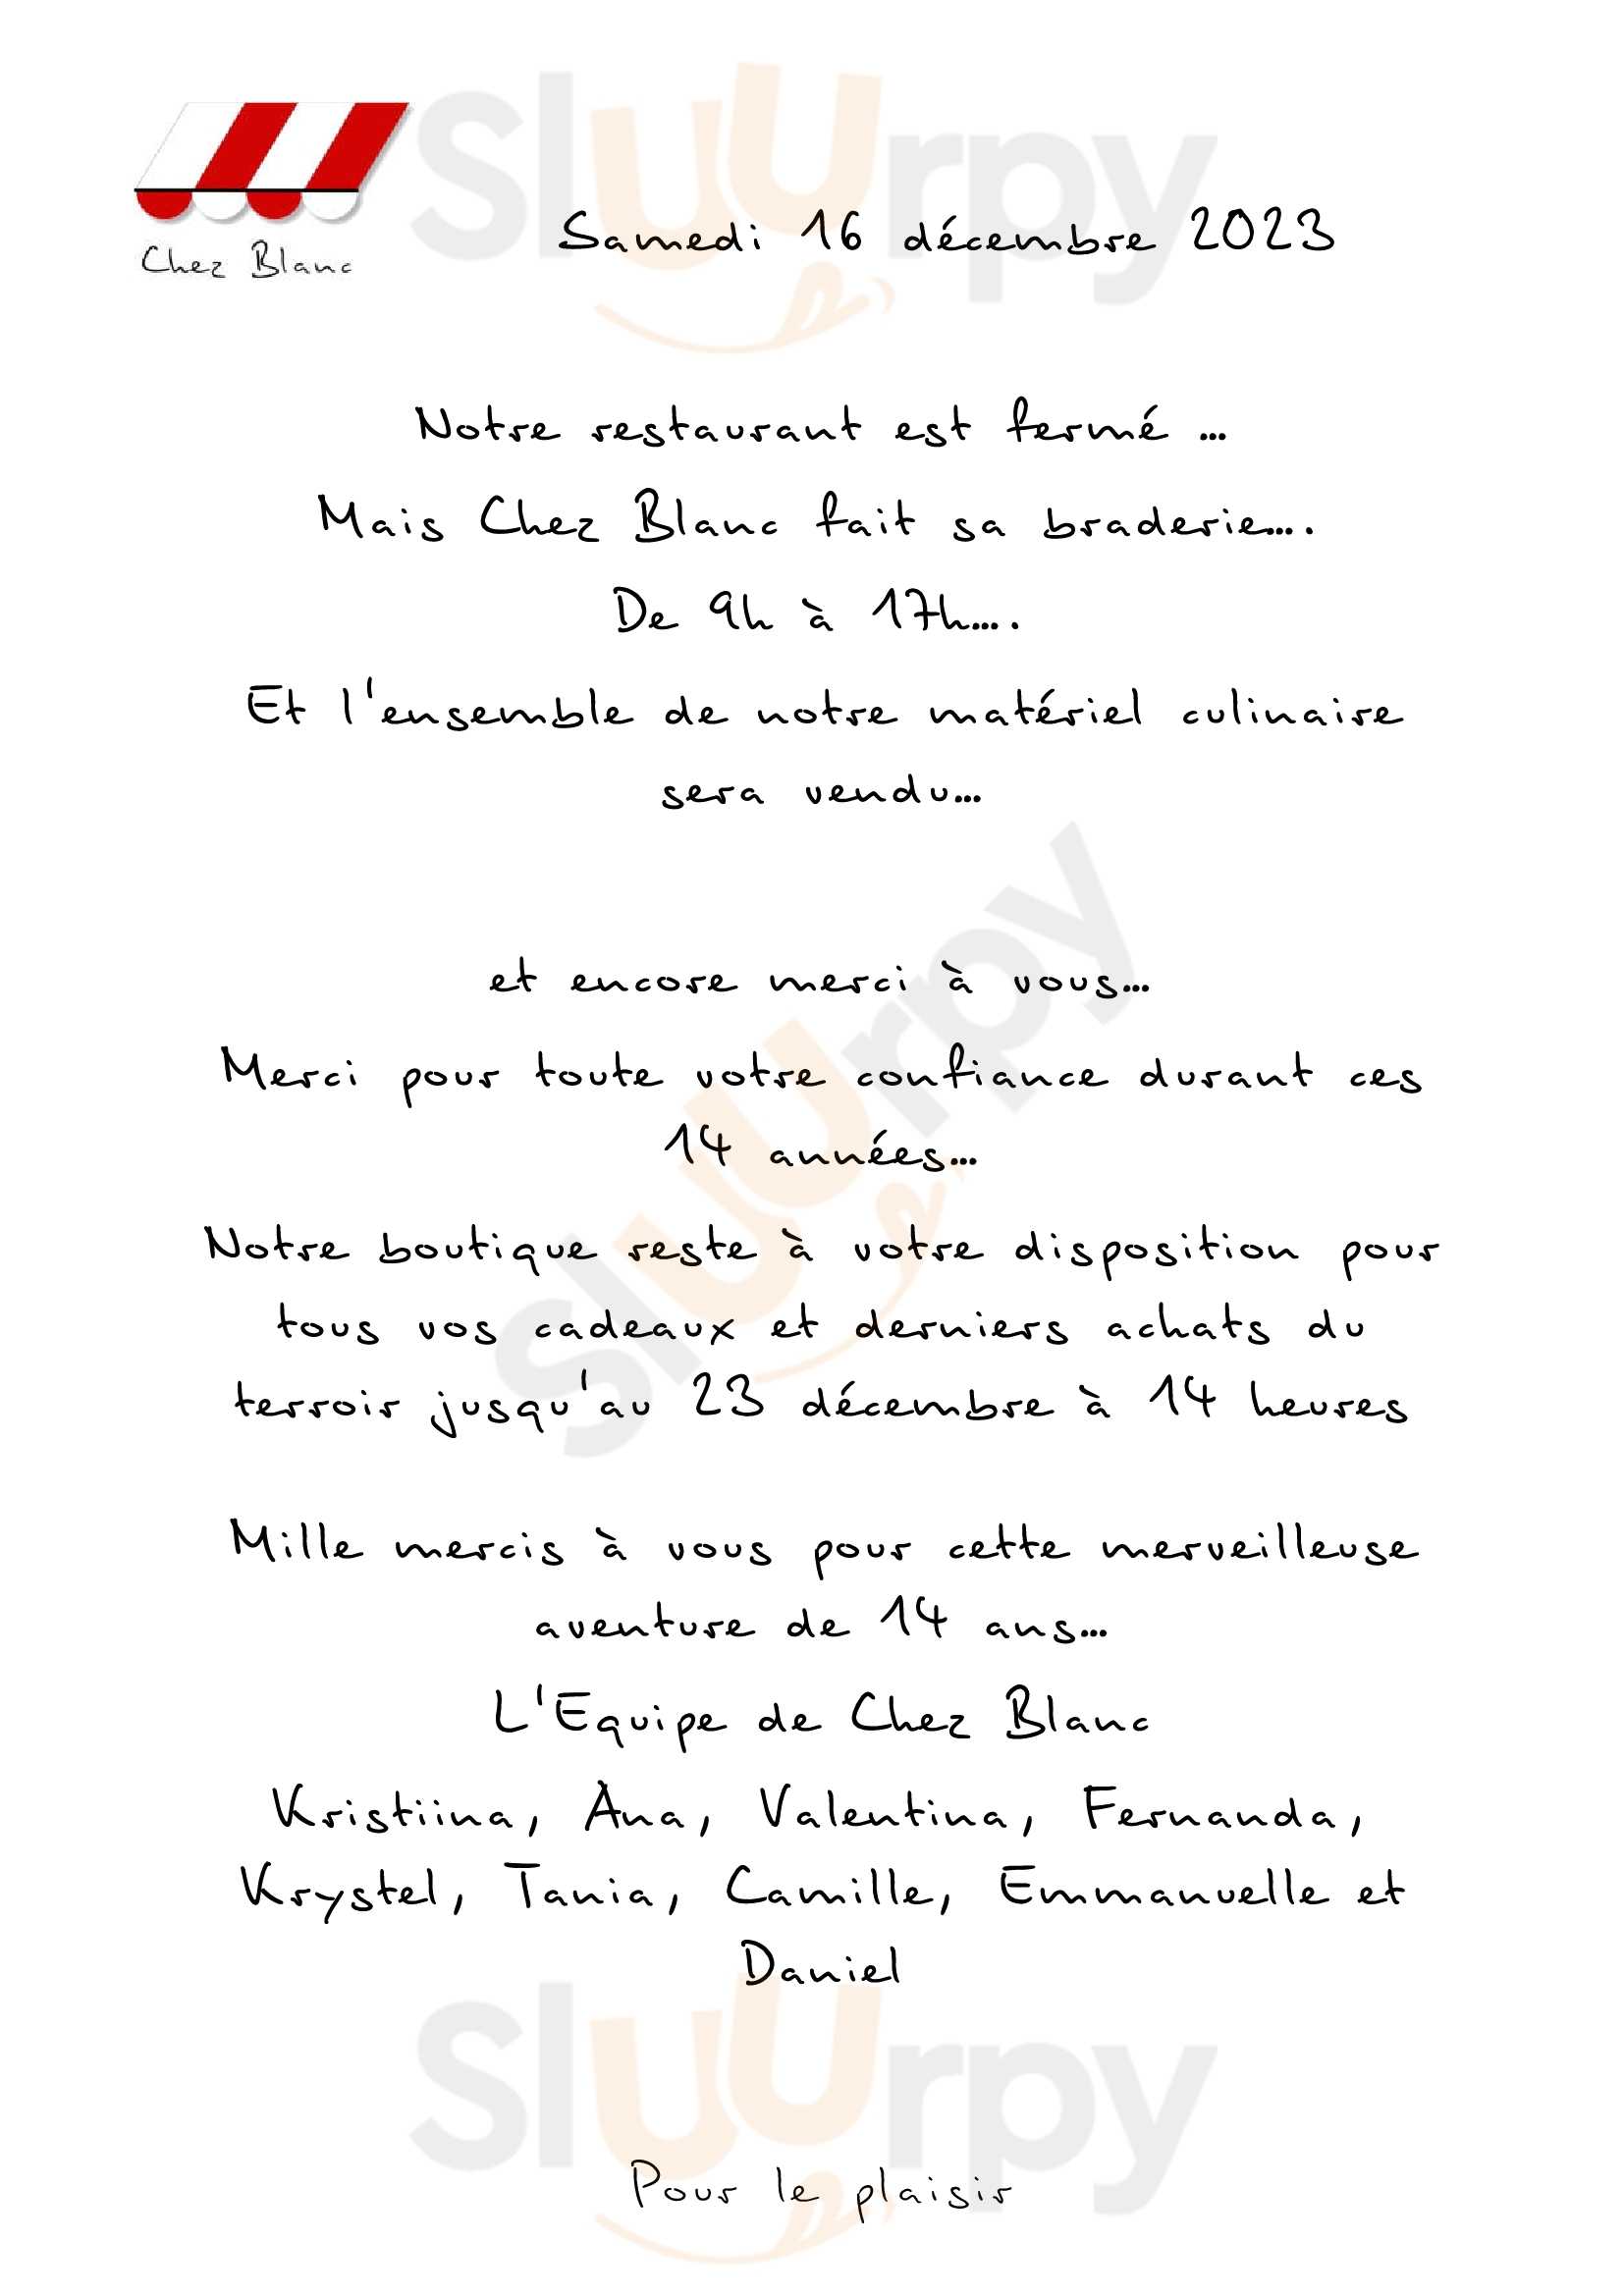 Sluurpy
Chez Blanc
Samedi 16 décembre 2023
Notre restaurant est fermé ...
Mais Chez Blanc fait sa braderie....
De 9h à 17h....
Et l'ensemble de notre matériel culinaire
sera vendu...
et encore merci à vous...
Merci pour toute votre confiance durant ces
14 années...
Sluurpy
Notre boutique reste à votre disposition pour
tous vos cadeaux et derniers achats du
terroir jusqu'au 23 décembre à 14 heures
Mille mercis à vous pour cette merveilleuse
aventure de 14 ans...
L'Equipe de Chez Blanc
Kristiina, Ana, Valentina, Fernanda,
Krystel, Tania, Camille, Emmanuelle et
Daniel
Sluurpy
Pour le plaisir